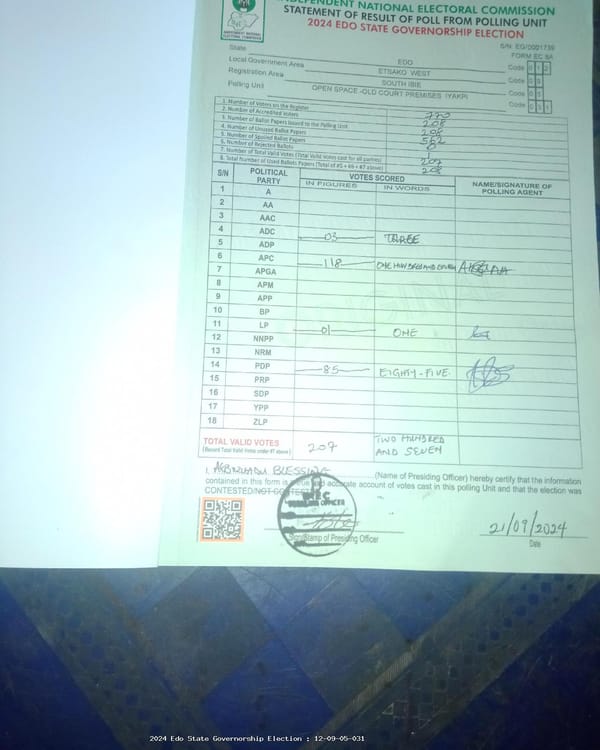 INDEPENDENT NATIONAL ELECTORAL COMMISSION
STATEMENT OF RESULT OF POLL FROM POLLING UNIT
2024 EDO STATE GOVERNORSHIP ELECTION
S/N: EG/0001739
FORM EC 8A
State EDO Code 1 2
Local Government Area ETSAKO WEST Code
Registration Area SOUTH IBIE Code
Polling Unit OPEN SPACE -OLD COURT PREMISES IYAKPI Code
1. Number of Voters on the Register 770
2. Number of Accredited Voters 208
3. Number of Ballot Papers Issued to the Polling Unit
4. Number of Unused Ballot Papers 562
5. Number of Spoiled Ballot Papers
6. Number of Rejected Ballots
7. Number of Total Valid Votes (Total Valid Votes cast for all parties) 207
8. Total Number of Used Ballots Papers (Total of #5 + #6 + #7 above) 208
S/N POLITICAL PARTY VOTES SCORED NAME/SIGNATURE OF POLLING AGENT
IN FIGURES IN WORDS
1 A
2 AA
3 AAC
4 ADC 03 THREE
5 ADP
6 APC 118
7 APGA
8 APM
9 APP
10 BP
11 LP 01 ONE
12 NNPP
13 NRM
14 PDP 85 EIGHTY-FIVE
15 PRP
16 SDP
17 YPP
18 ZLP
TOTAL VALID VOTES 207 TWO HUNDRED AND SEVEN
(Record Total Valid Votes under #7 above)
I, BLESSING (Name of Presiding Officer) hereby certify that the information
contained in this form is a true and accurate account of votes cast in this polling Unit and that the election was
CONTESTED/NOT CONTESTED
INEC
PRESIDING OFFICER
Sign/Stamp of Presiding Officer
21/09/2024
Date
2024 Edo State Governorship Election : 12-09-05-031